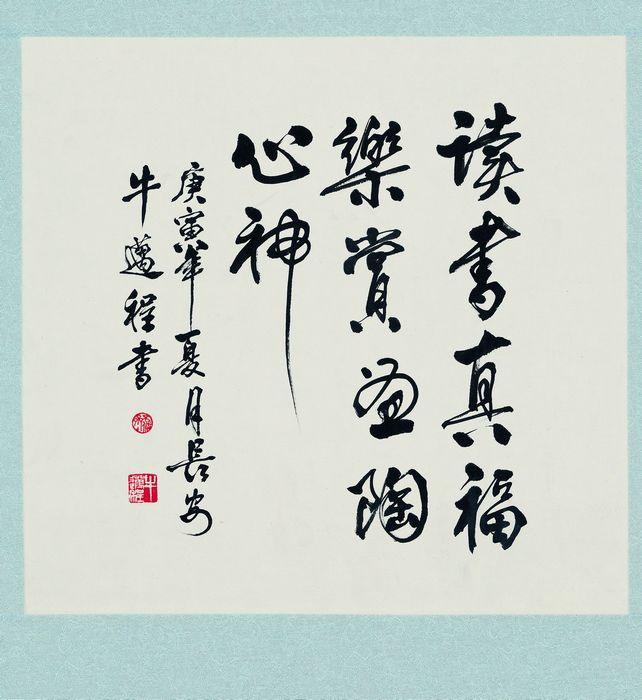 读书真福
樂賞画陶
心神
庚寅年夏月長安
牛邁程书